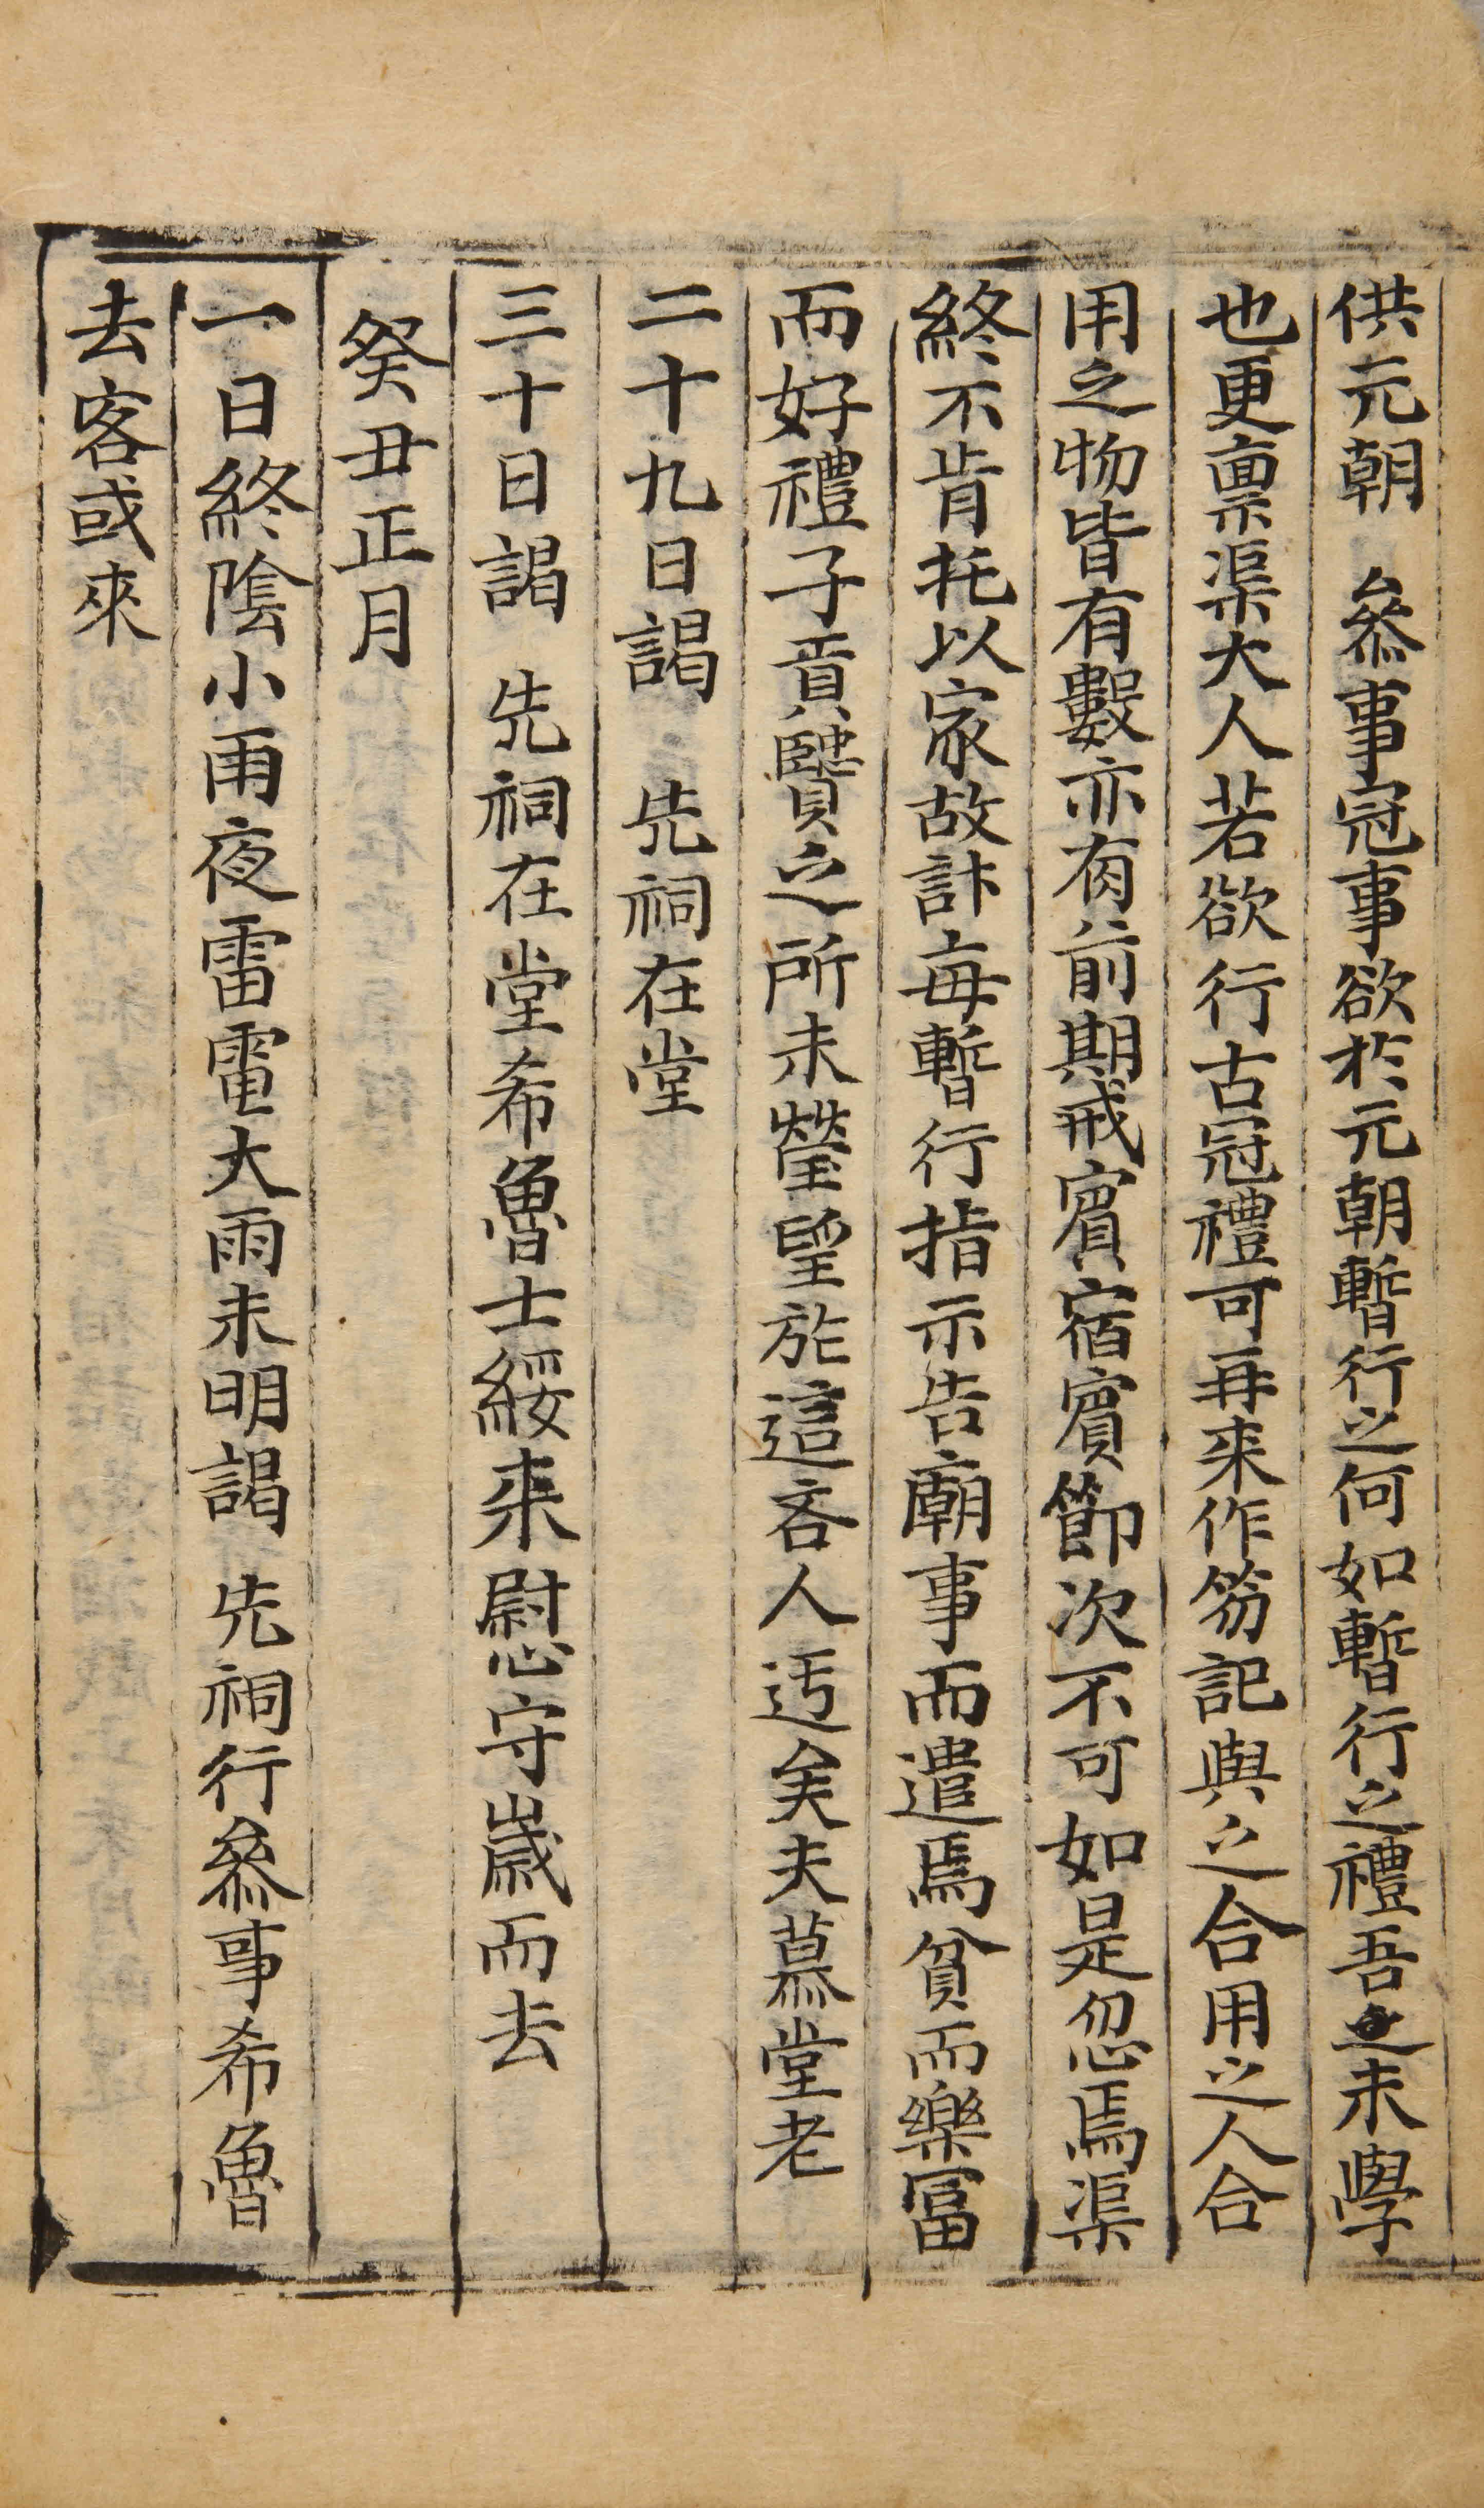 供元朝　叅事冠事欲於元朝暫行之何如暫行之禮吾之未學
也更禀渠大人若欲行古冠禮可再来作笏記與之合用之人合
用之物皆有數亦有前期戒賓宿賓節次不可如是忽焉渠
終不肯托以家故計每暫行指示告廟事而遣焉貧而樂冨
而好禮子貢賢之所未瑩望於這吝人迃矣夫慕堂老
二十九日謁　先祠在堂
三十日謁　先祠在堂希魯士綏来慰守歲而去
癸丑正月
一日終隂小雨夜雷電大雨未明謁　先祠行叅事希魯
去客或來